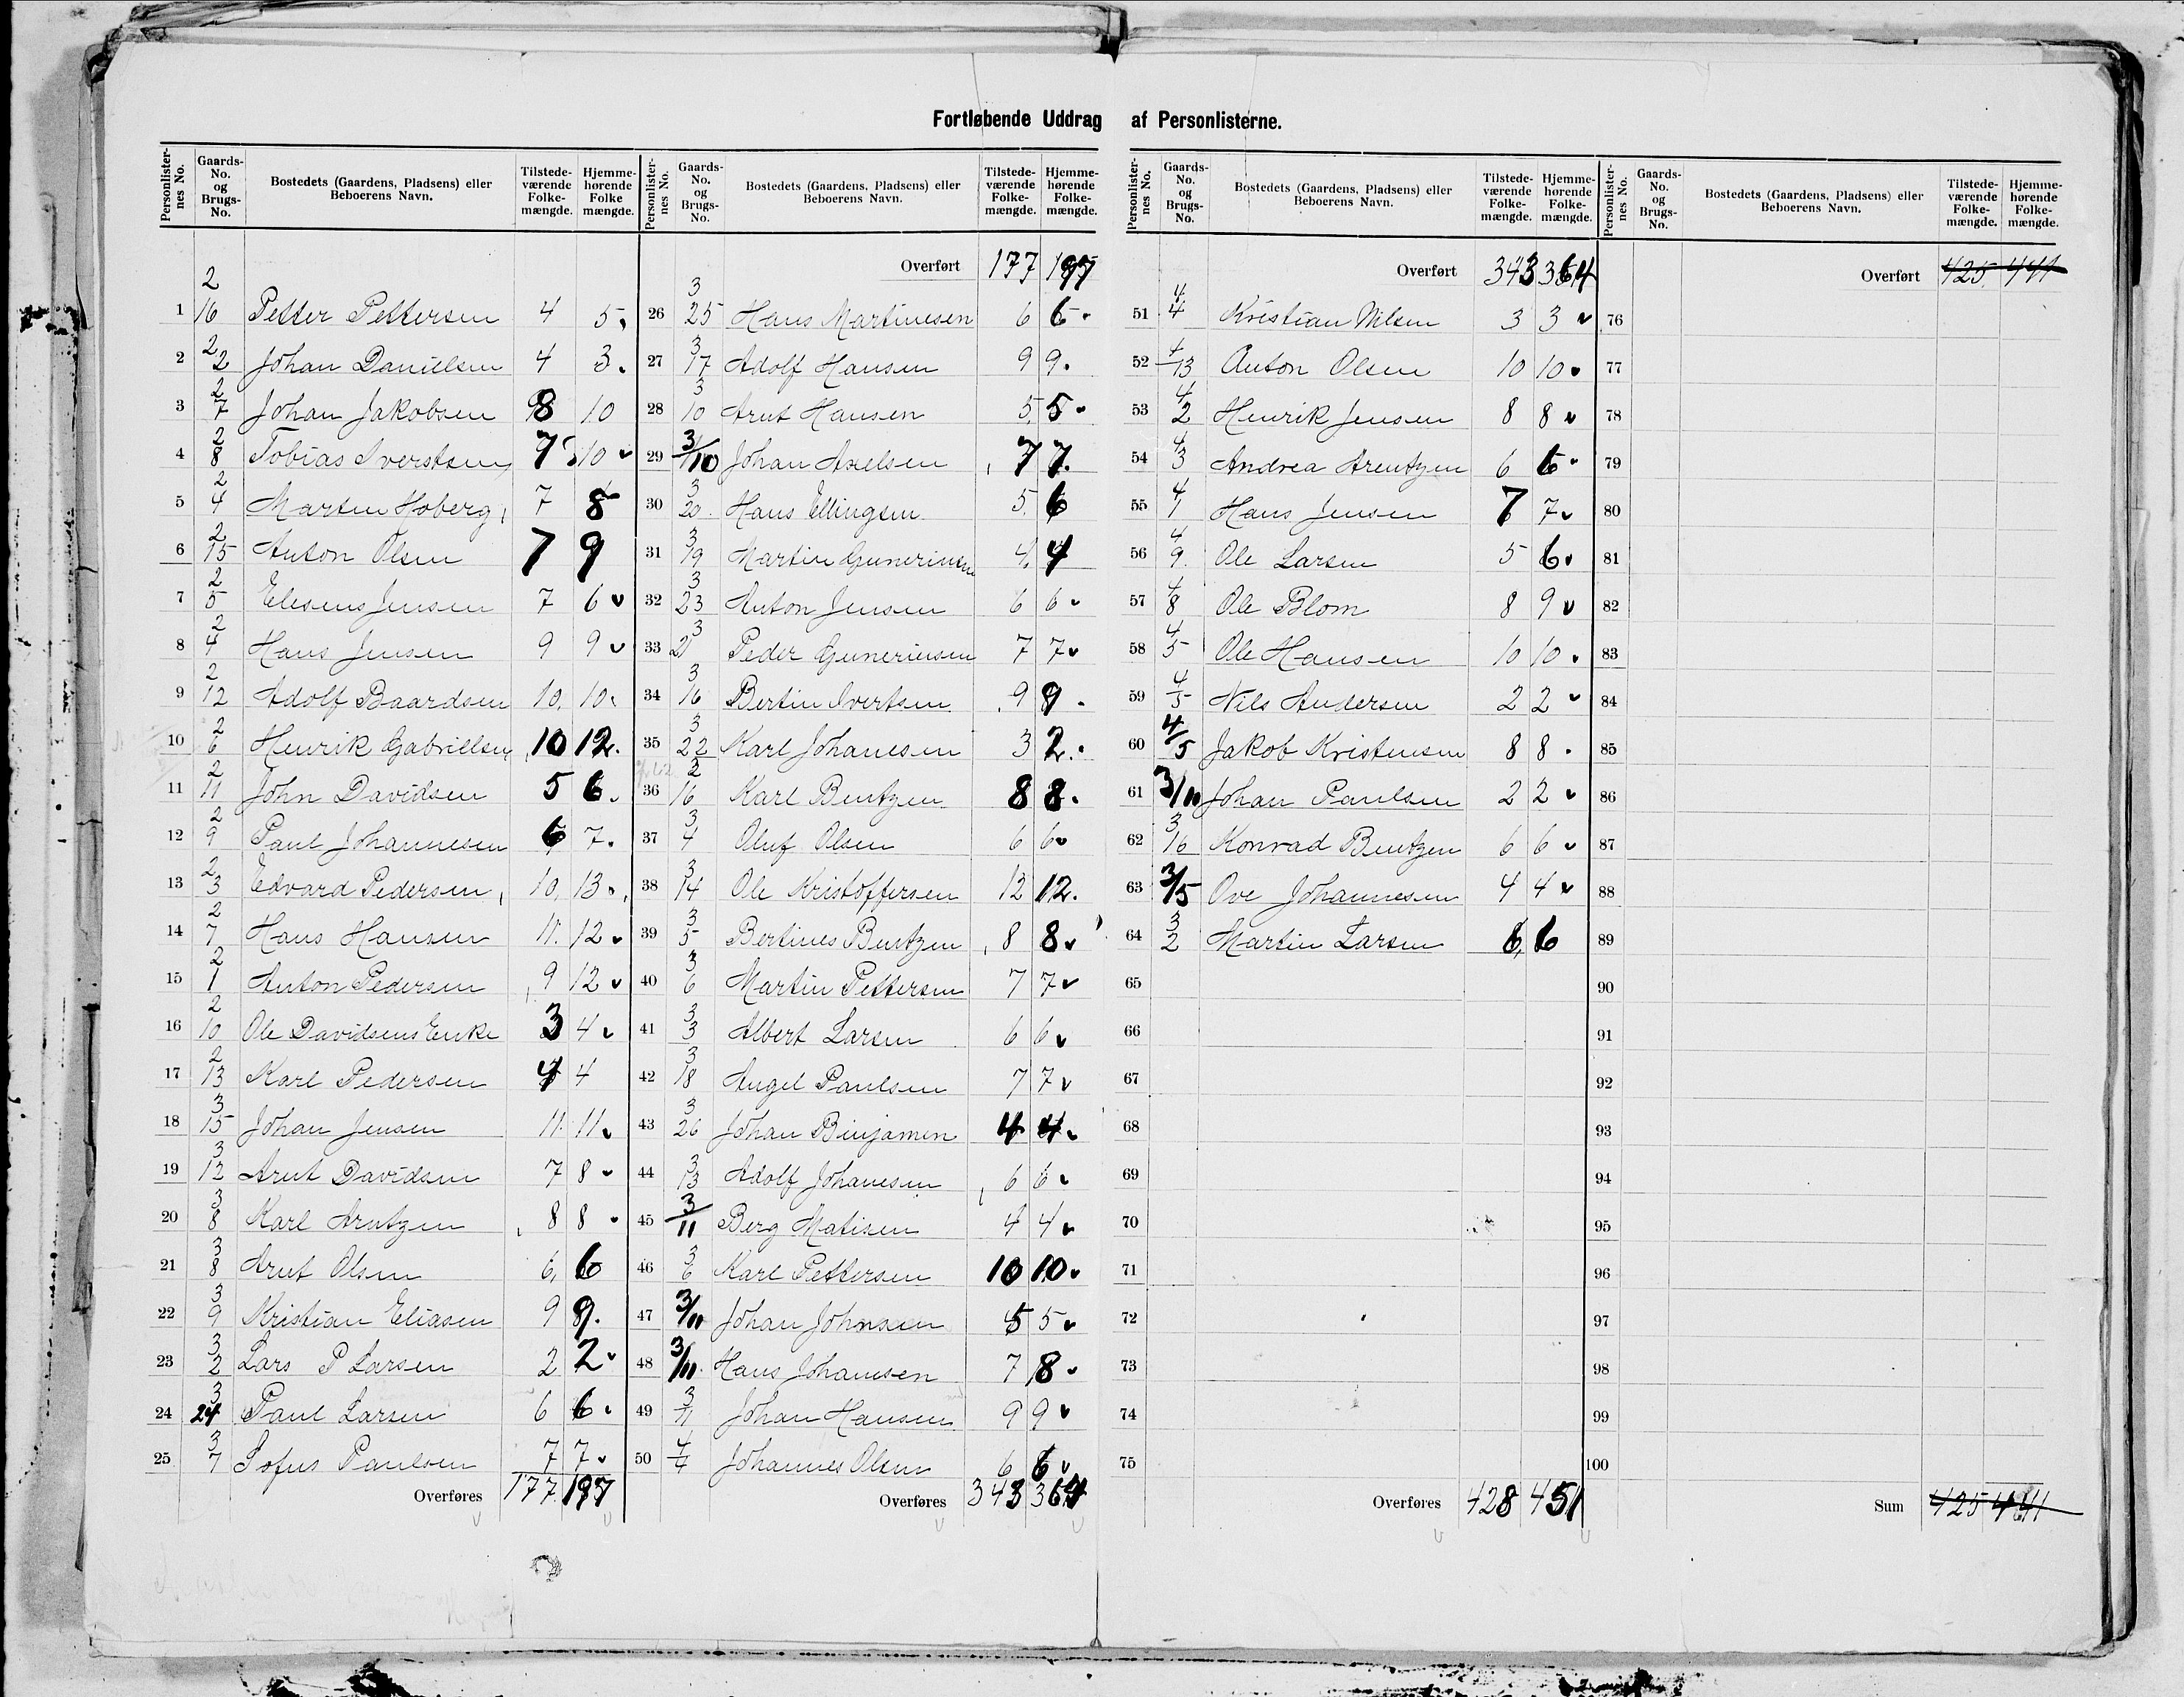 Fortløbende Uddrag af Personlisterne.
Personlister-nes No. | Gaards-No. og Brugs-No. | Bostedets (Gaardens, Pladsens) eller Beboerens Navn. | Tilstede-værende Folke-mængde. | Hjemme-hørende Folke mængde.
1 2/16 Petter Pettersen 4 5
2 2/2 Johan Danielsen 4 3
3 2/7 Johan Jakobsen 8 10
4 2/8 Tobias Iverstsen 7 10
5 2/4 Martin Hoberg 7 8
6 2/15 Anton Olsen 7 9
7 2/5 Eleseus Jensen 7 6
8 2/4 Hans Jensen 9 9
9 2/12 Adolf Baardsen 10 10
10 2/6 Henrik Gabrielsen 10 12
11 2/11 John Davidsen 5 6
12 2/9 Paul Johannesen 6 7
13 2/3 Edvard Pedersen 10 13
14 2/7 Hans Hansen 11 12
15 2/1 Anton Pedersen 9 12
16 2/10 Ole Davidsens Enke 3 4
17 2/13 Karl Pedersen 4 4
18 3/15 Johan Jensen 11 11
19 3/12 Arnt Davidsen 7 8
20 3/8 Karl Arntzen 8 8
21 3/8 Arnt Olsen 6 6
22 3/9 Kristian Eliasen 9 9
23 3/2 Lars P Larsen 2 2
24 3/24 Paul Larsen 6 6
25 3/7 Sofus Paulsen 7 7
Overføres 177 197
Personlister-nes No. | Gaards-No. og Brugs-No. | Bostedets (Gaardens, Pladsens) eller Beboerens Navn. | Tilstede-værende Folke-mængde. | Hjemme-hørende Folke-mængde.
Overført 177 197
26 3/25 Hans Martinesen 6 6
27 3/17 Adolf Hansen 9 9
28 3/10 Arnt Hansen 5 5
29 3/10 Johan Axelsen 7 7
30 3/20 Hans Ellingsen 5 6
31 3/19 Martin Gunerinsen 4 4
32 3/23 Anton Jensen 6 6
33 3/21 Peder Gunerinsen 7 7
34 3/16 Bertin Ivertsen 9 9
35 3/22 Karl Johanesen 3 2
36 3/16 Karl Bentzen 8 8
37 3/4 Oluf Olsen 6 6
38 3/14 Ole Kristoffersen 12 12
39 3/5 Bertines Bentzen 8 8
40 3/6 Martin Pettersen 7 7
41 3/3 Albert Larsen 6 6
42 3/18 Angel Paulsen 7 7
43 3/26 Johan Binjamen 4 4
44 3/13 Adolf Johanesen 6 6
45 3/11 Berg Matisen 4 4
46 3/6 Karl Pettersen 10 10
47 3/11 Johan Johnsen 5 5
48 3/11 Hans Johansen 7 8
49 3/11 Johan Hansen 9 9
50 4/4 Johannes Olsen 6 6
Overføres 343 364
Personlister-nes No. | Gaards-No. og Brugs-No. | Bostedets (Gaardens, Pladsens) eller Beboerens Navn. | Tilstede-værende Folke-mængde. | Hjemme-hørende Folke-mængde.
Overført 343 364
51 4/4 Kristian Nilsen 3 3
52 4/13 Anton Olsen 10 10
53 4/2 Henrik Jensen 8 8
54 4/3 Andrea Arentzen 6 6
55 4/1 Hans Jensen 7 7
56 4/9 Ole Larsen 5 6
57 4/8 Ole Blom 8 9
58 4/5 Ole Hansen 10 10
59 4/5 Nils Andersen 2 2
60 4/5 Jakob Kristensen 8 8
61 3/11 Johan Paulsen 2 2
62 3/16 Konrad Bentzen 6 6
63 3/5 Ove Johannesen 4 4
64 3/2 Martin Larsen 6 6
65
66
67
68
69
70
71
72
73
74
75
Overføres 428 451
Personlister-nes No. | Gaards-No. og Brugs-No. | Bostedets (Gaardens, Pladsens) eller Beboerens Navn. | Tilstede-værende Folke-mængde. | Hjemme-hørende Folke-mængde.
Overført 425 441
76
77
78
79
80
81
82
83
84
85
86
87
88
89
90
91
92
93
94
95
96
97
98
99
100
Sum 425 441